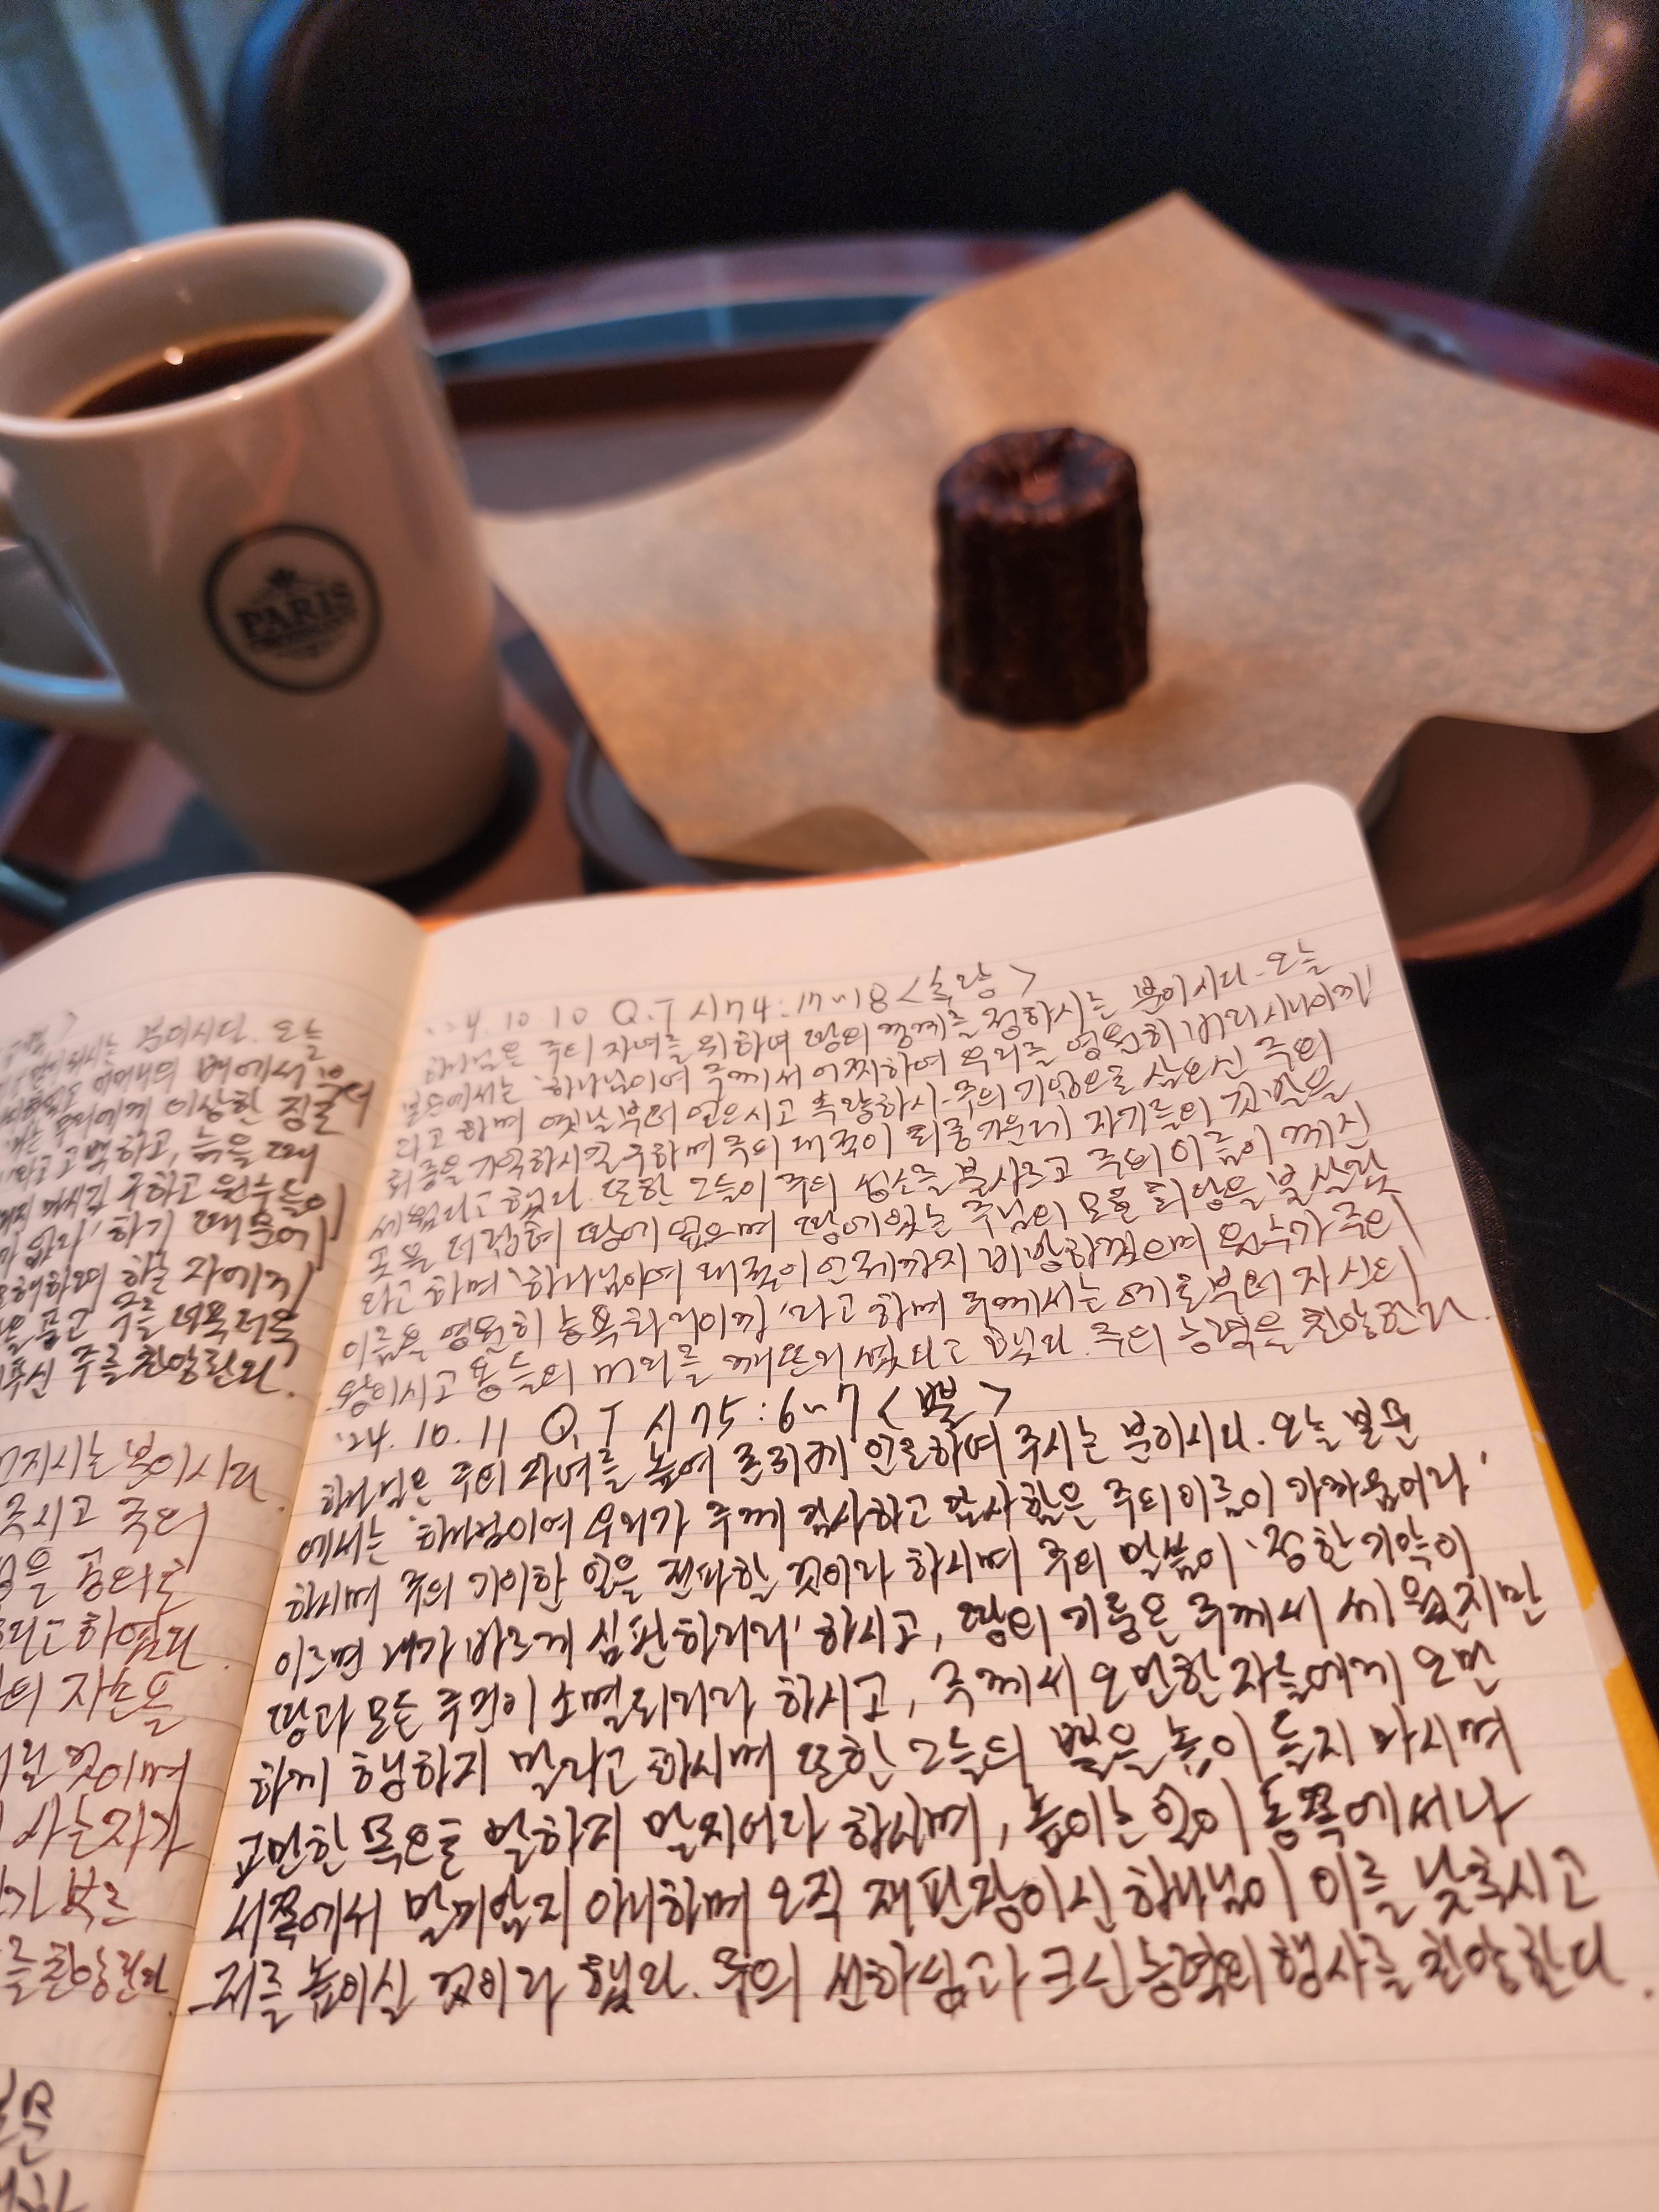 PARIS
부이시다. 오늘
배에서부터
이상한 징조
라고 고백하고, 늙을 때
구하고 원수들이
없다' 하기 때문에
하는 자에게
품고 주를 더욱더욱
주를 찬양한다.
지시는 분이시다.
주시고 주의
공의로
하였다.
의 자손을
것이며
사는 자가
를 찬양한다.
'24. 10. 10 Q.T 시74:17~18 <촉량>
하나님은 주의 자녀를 위하여 땅의 경계를 정하시는 분이시다. 오늘
본문에서는 '하나님이여 주께서 어찌하여 우리를 영원히 버리시나이까'
라고 하며 옛날부터 얻으시고 속량하사 주의 기업으로 삼으신 주의
회중을 기억하시길 구하며 주의 대적이 회중 가운데 자기들의 깃발을
세웠다고 했다. 또한 그들이 주의 성소를 불사르고 주의 이름이 계신
곳을 더럽혀 땅에 엎으며 땅에 있는 주님의 모든 회당을 불살랐
다고 하며 '하나님이여 대적이 언제까지 비방하겠으며 원수가 주의
이름을 영원히 능욕하리이까'라고 하며 주께서는 예로부터 자신의
왕이시고 용들의 머리를 깨뜨리셨다고 했다. 주의 능력을 찬양한다.
'24. 10. 11 Q.T 시75:6~7 <뿔>
하나님은 주의 자녀를 높여 존귀케 인도하여 주시는 분이시다. 오늘 본문
에서는 '하나님이여 우리가 주께 감사하고 감사함은 주의 이름이 가까움이라'
하시며 주의 기이한 일을 전파할 것이라 하시며 주의 말씀이 '정한 기약이
이르면 내가 바르게 심판하리라' 하시고, 땅의 기둥은 주께서 세웠지만
땅과 모든 주민이 소멸되리라 하시고, 주께서 오만한 자들에게 오만
하게 행하지 말라고 하시며 또한 그들의 뿔을 높이 들지 마시며
교만한 목으로 말하지 말지어다 하시며, 높이는 일이 동쪽에서나
서쪽에서 말미암지 아니하며 오직 재판장이신 하나님이 이를 낮추시고
저를 높이실 것이라 했다. 주의 선하심과 크신 능력의 행사를 찬양한다.